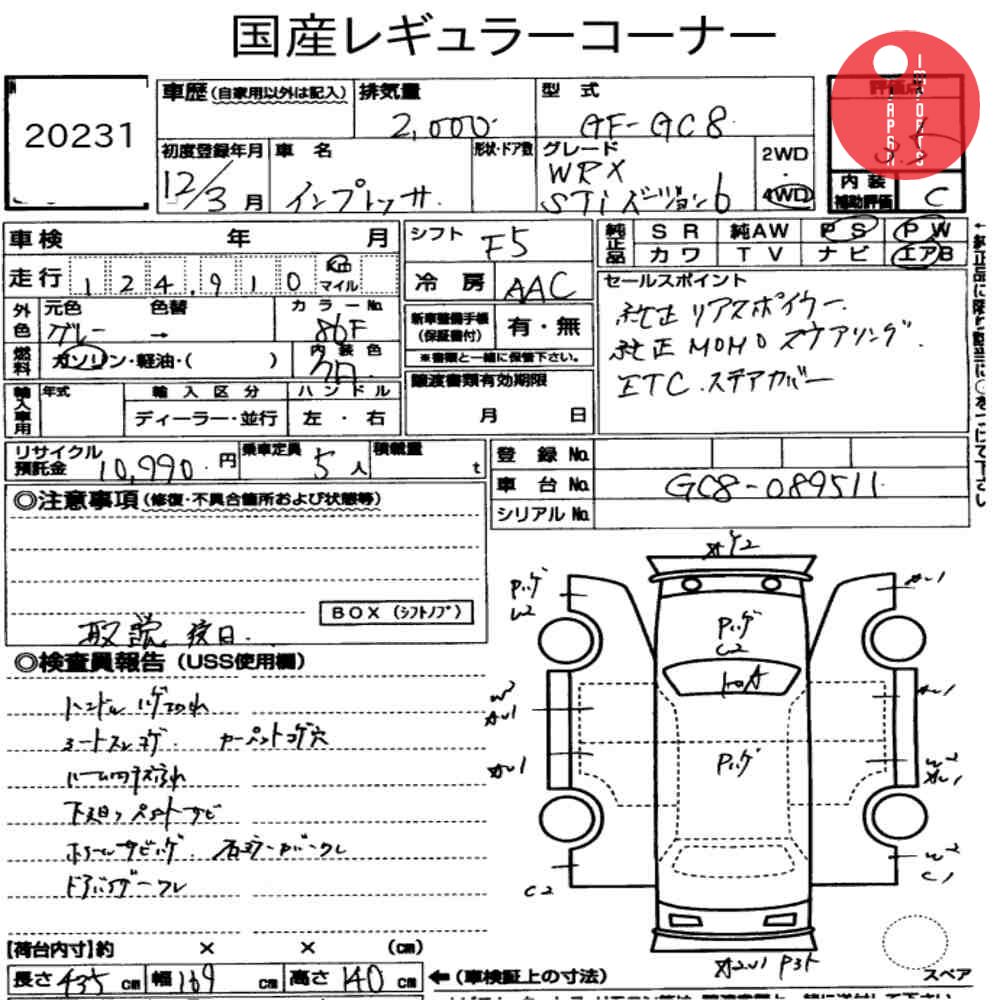 国産レギュラーコーナー
JAPAN IMPORTS
20231
車歴(自家用以外は記入) 排気量 型式 評価点
2,000 GF-GC8 3.5
初度登録年月 車名 形状・ドア数 グレード 2WD・4WD 内装補助評価
12/3月 インプレッサ WRX STiバージョン6 C
車検 年 月 シフト F5 純正品 SR 純AW PS PW
走行 124,910 Km マイル 冷房 AAC カワ TV ナビ エアB
外色 元色 色替 カラーNo. セールスポイント
グレー → 86F 新車整備手帳(保証書付) 有・無 純正リアスポイラー.
燃料 ガソリン・軽油・( ) 内装色 クロ. ※書類と一緒に保管下さい。 純正MOMOステアリング.
輸入車用 年式 輸入区分 ハンドル 譲渡書類有効期限 ETC.ステアカバー
ディーラー・並行 左・右 月 日
リサイクル預託金 10,990.円 乗車定員 5人 積載量 t 登録No.
車台No. GC8-089511
シリアルNo.
◎注意事項(修復・不具合箇所および状態等)
BOX(シフトノブ)
取説 後日.
◎検査員報告(USS使用欄)
ハンドルハゲスレ
シートスレコゲ. カーペットコゲ穴
ルーム内キズ汚れ
下廻りペイントサビ
【荷台内寸】約 × × (cm)
長さ 435 cm 幅 169 cm 高さ 140 cm ←(車検証上の寸法)
スペア
Pハゲ
U2
Pハゲ
U2
トbA
Pハゲ
W2
AU1
AU1
AU1
AU1
W2
AU1
W2
C1
C2